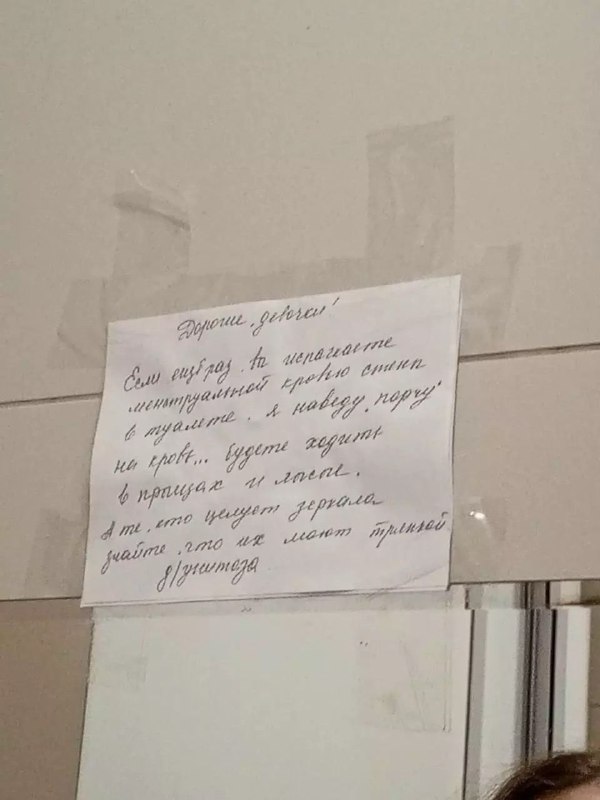 Дорогие девочки!
Если ещё раз вы испачкаете
менструальной кровью стены
в туалете, я наведу „порчу"
на кровь... будете ходить
в прыщах и лысые.
А те, кто целует зеркала
знайте, что их моют тряпкой
д/унитаза